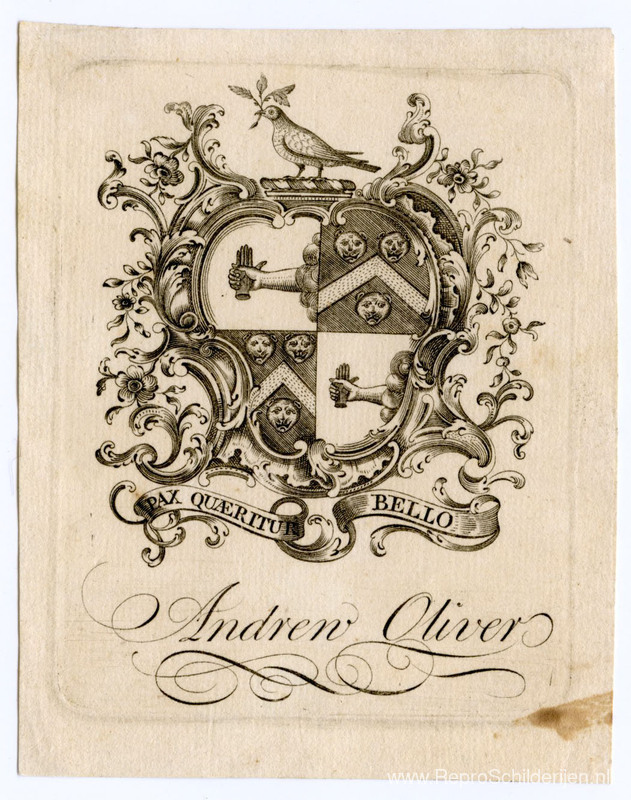 PAX QUÆRITUR BELLO
Andrew Oliver
www.ReproSchilderijen.nl